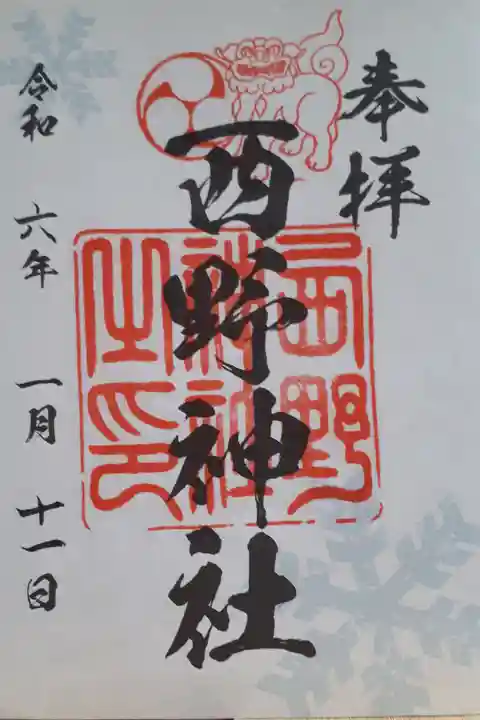 奉拝
西野神社
西野
神社
之印
令和 六年 一月 十一日